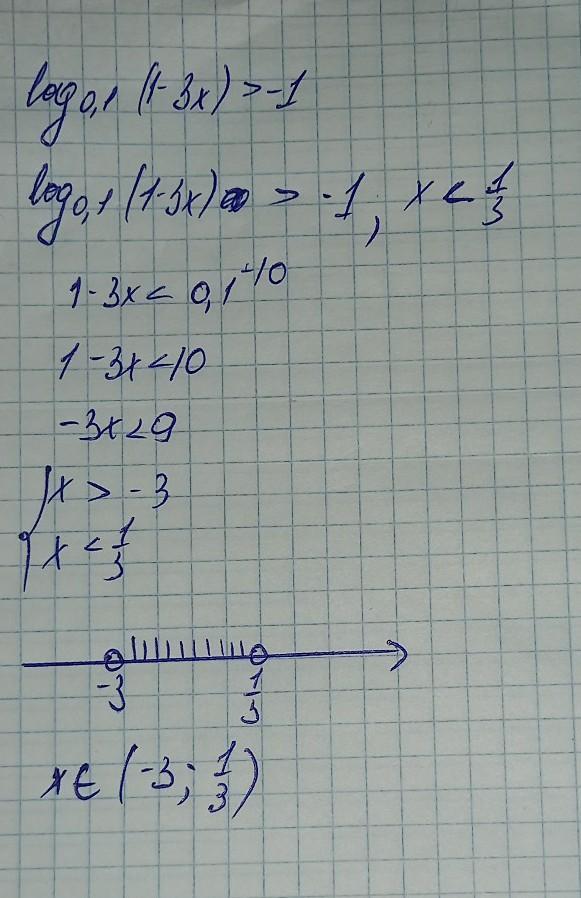 log₀,₁ (1-3x) > -1
log₀,₁ (1-3x) > -1, x < 1/3
1-3x < 0,1⁻¹⁰
1-3x < 10
-3x < 9
{x > -3
x < 1/3
-3 1/3
x ∈ (-3; 1/3)